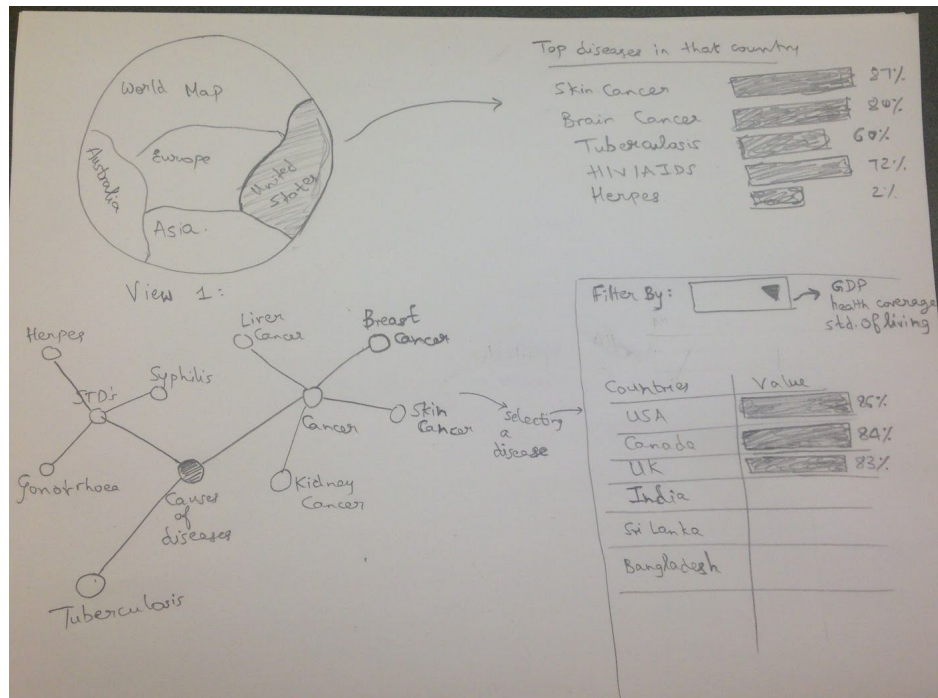 World Map
Australia
Europe
United
States
Asia.
Top diseases in that country
Skin Cancer 87%
Brain Cancer 80%
Tuberculosis 60%
HIV/AIDS 72%
Herpes 2%
View 1:
Herpes
STD's
Syphilis
Gonorrhoea
Causes
of
diseases
Tuberculosis
Liver
Cancer
Breast
Cancer
Cancer
Skin
Cancer
Kidney
Cancer
selecting
a
disease
Filter By:
GDP
health coverage
std. of living
Countries Value
USA 86%
Canada 84%
UK 83%
India
Sri Lanka
Bangladesh